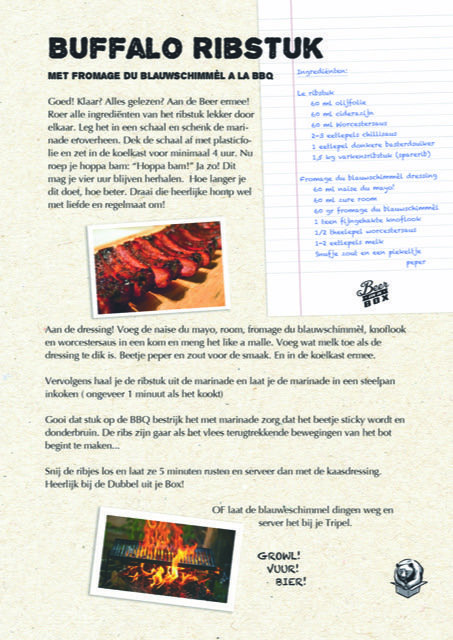 BUFFALO RIBSTUK
MET FROMAGE DU BLAUWSCHIMMÈL A LA BBQ
Goed! Klaar? Alles gelezen? Aan de Beer ermee!
Roer alle ingrediënten van het ribstuk lekker door
elkaar. Leg het in een schaal en schenk de mari-
nade eroverheen. Dek de schaal af met plasticfo-
lie en zet in de koelkast voor minimaal 4 uur. Nu
roep je hoppa bam: “Hoppa bam!” Ja zo! Dit
mag je vier uur blijven herhalen. Hoe langer je
dit doet, hoe beter. Draai die heerlijke homp wel
met liefde en regelmaat om!
Ingrediënten:
Le ribstuk
60 ml olijfolie
60 ml ciderazijn
60 ml Worcestersaus
2-3 eetlepels chilisaus
1 eetlepel donkere basterdsuiker
1,5 kg varkensribstuk (sparerib)
Fromage du blauwschimmèl dressing
60 ml naise du mayo!
60 ml zure room
60 gr fromage du blauwschimmèl
1 teen fijngehakte knoflook
1/2 theelepel worcestersaus
1-2 eetlepels melk
Snufje zout en een piekeltje
peper
Beer
in a
BOX
Aan de dressing! Voeg de naise du mayo, room, fromage du blauwschimmèl, knoflook
en worcestersaus in een kom en meng het like a malle. Voeg wat melk toe als de
dressing te dik is. Beetje peper en zout voor de smaak. En in de koelkast ermee.
Vervolgens haal je de ribstuk uit de marinade en laat je de marinade in een steelpan
inkoken ( ongeveer 1 minuut als het kookt)
Gooi dat stuk op de BBQ bestrijk het met marinade zorg dat het beetje sticky wordt en
donderbruin. De ribs zijn gaar als het vlees terugtrekkende bewegingen van het bot
begint te maken...
Snij de ribjes los en laat ze 5 minuten rusten en serveer dan met de kaasdressing.
Heerlijk bij de Dubbel uit je Box!
OF laat de blauweschimmel dingen weg en
server het bij je Tripel.
GROWL!
VUUR!
BIER!